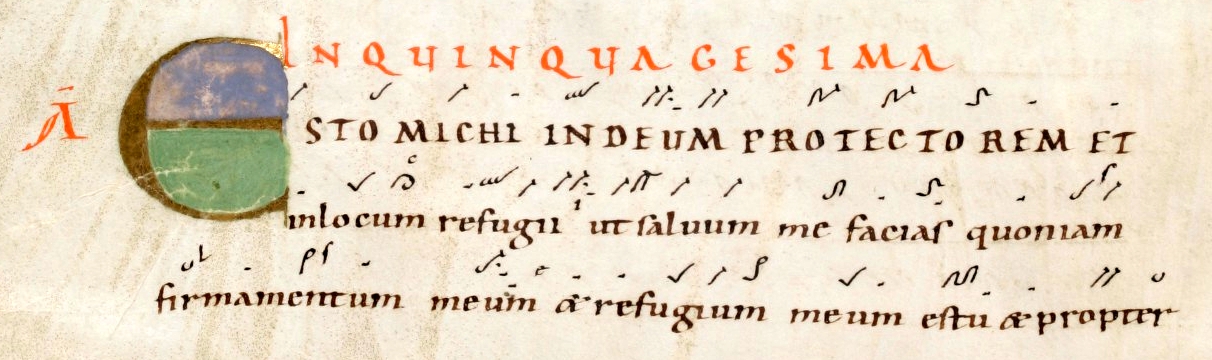 INQUINQUAGESIMA
Ā ESTO MICHI IN DEUM PROTECTOREM ET
inlocum refugii ut saluum me facias quoniam
firmamentum meum & refugium meum es tu & propter